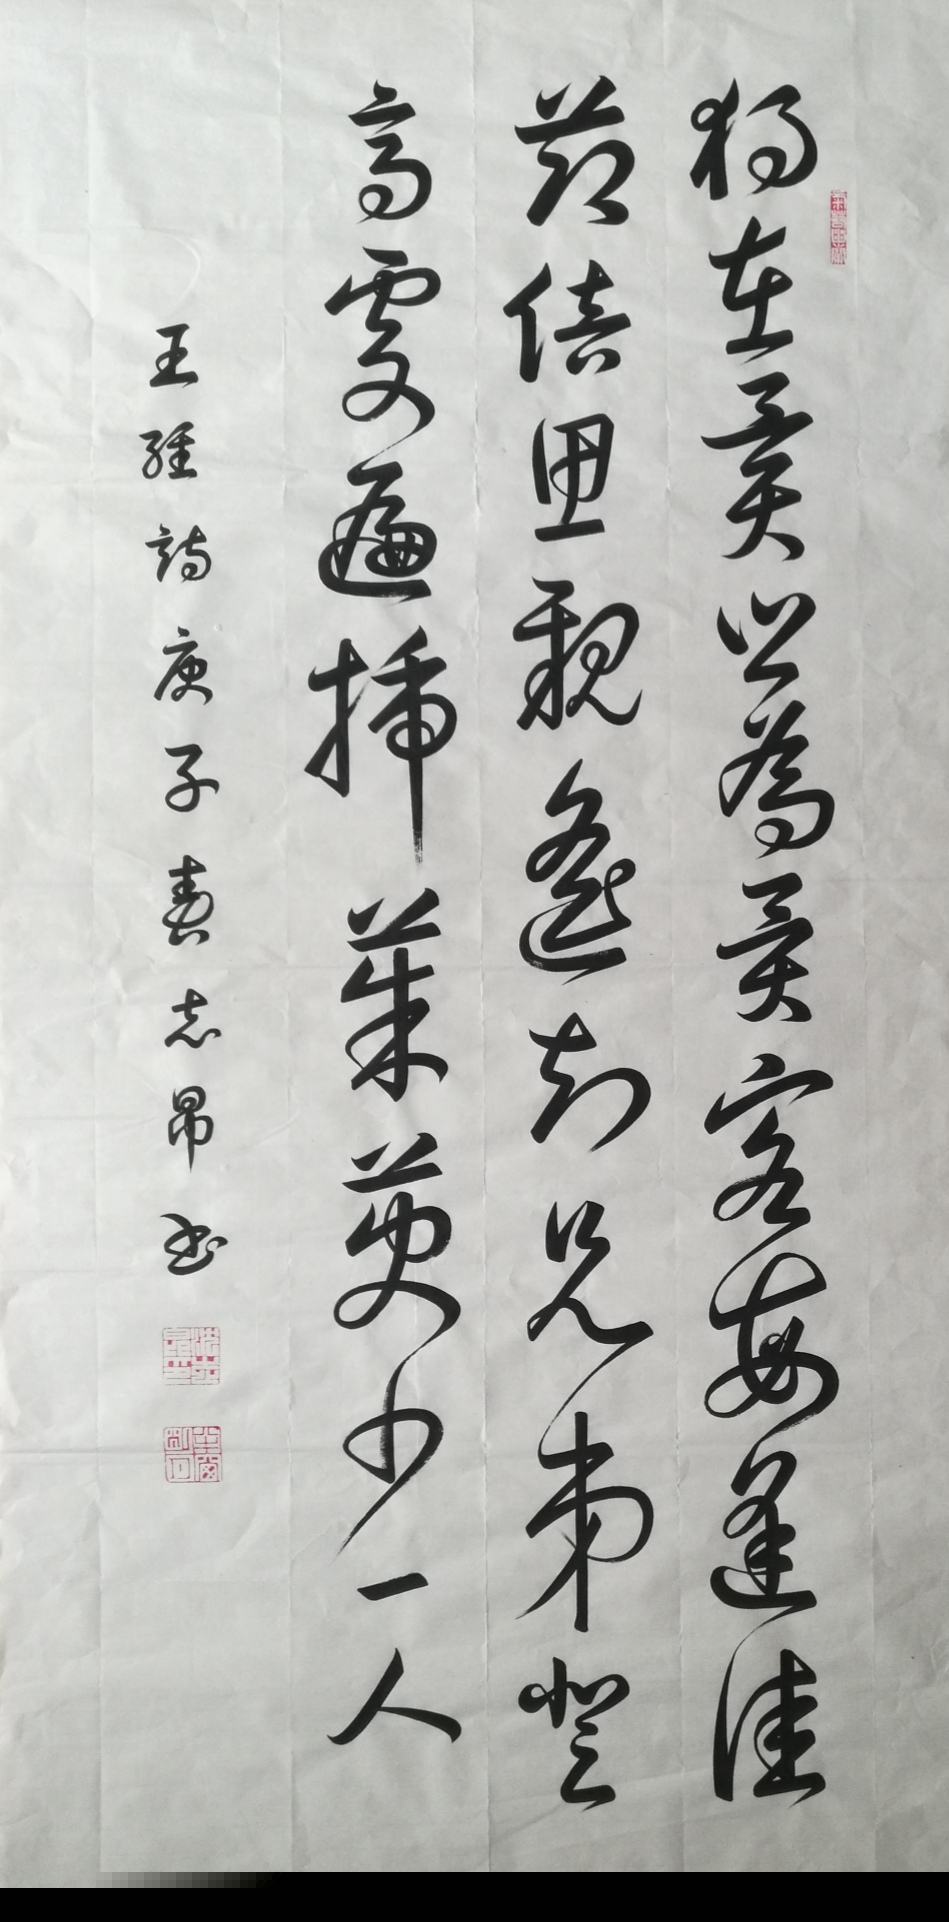 獨在异鄉為异客每逢佳
節倍思親遙知兄弟登
高處遍插茱萸少一人
王維詩庚子春志昂书